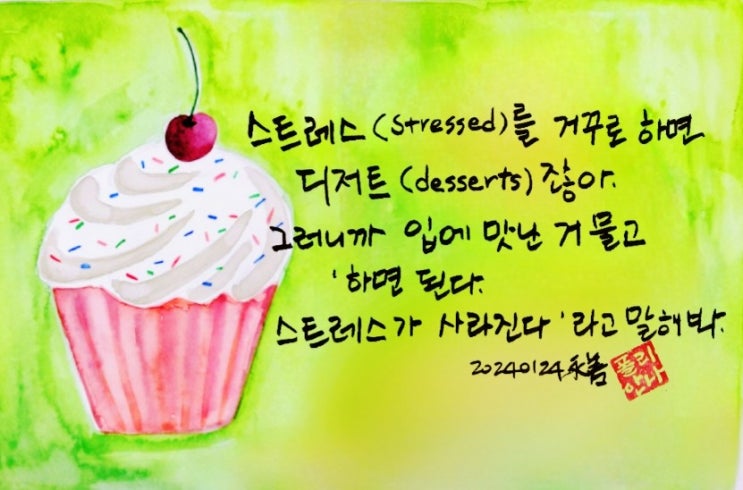 스트레스(stressed)를 거꾸로 하면
디저트(desserts)잖아.
그러니까 입에 맛난 거 물고
'하면 된다.
스트레스가 사라진다'라고 말해봐.
20240124 永善
폴리
안나